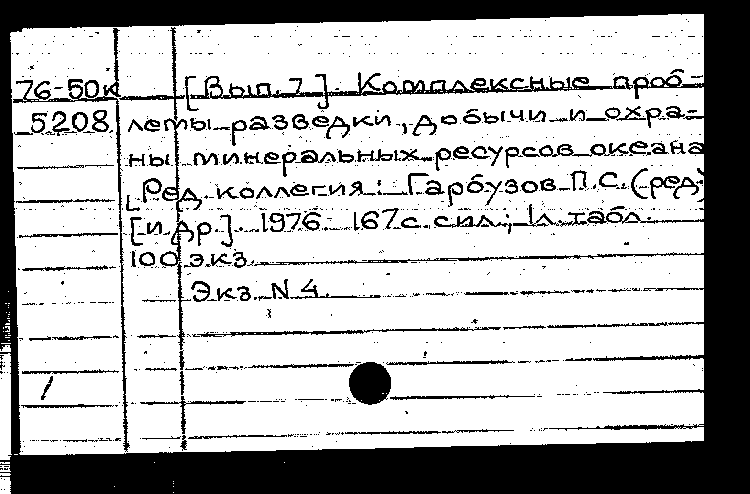 76-50к [Вып. 7]. Комплексные проб-
5208 лемы разведки, добычи и охра-
ны минеральных ресурсов океана
[Ред. коллегия: Гарбузов П.С. (ред.)
[и др.]. 1976. 167 с. с ил.; 1 л. табл.
100 экз.
Экз. N 4.
/